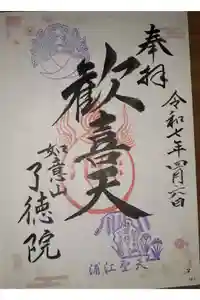 奉拝
令和七年四月六日
歓喜天
如意山
了徳院
浦江聖天